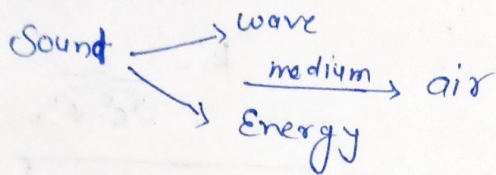 Sound → wave
medium → air
→ Energy